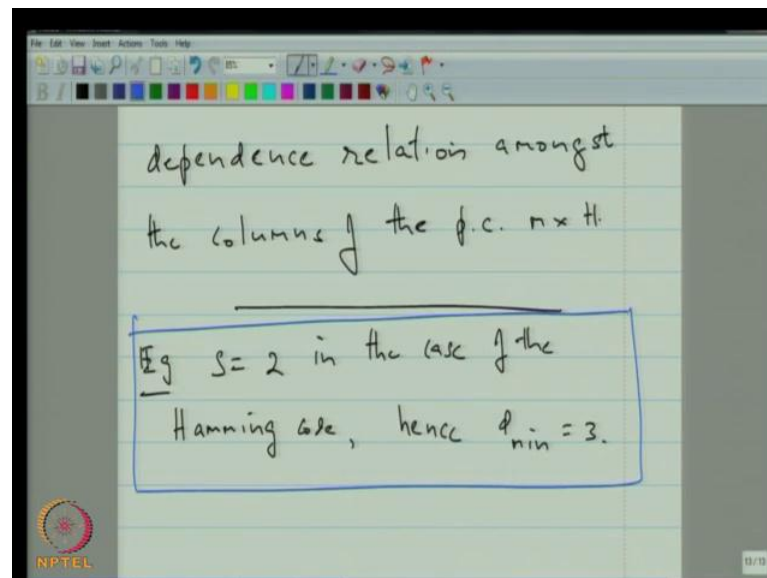 File Edit View Insert Actions Tools Help
dependence relation amongst
the columns of the p.c. mx H.
Eg S= 2 in the case of the
Hamming code, hence d min = 3.
NPTEL
13/13